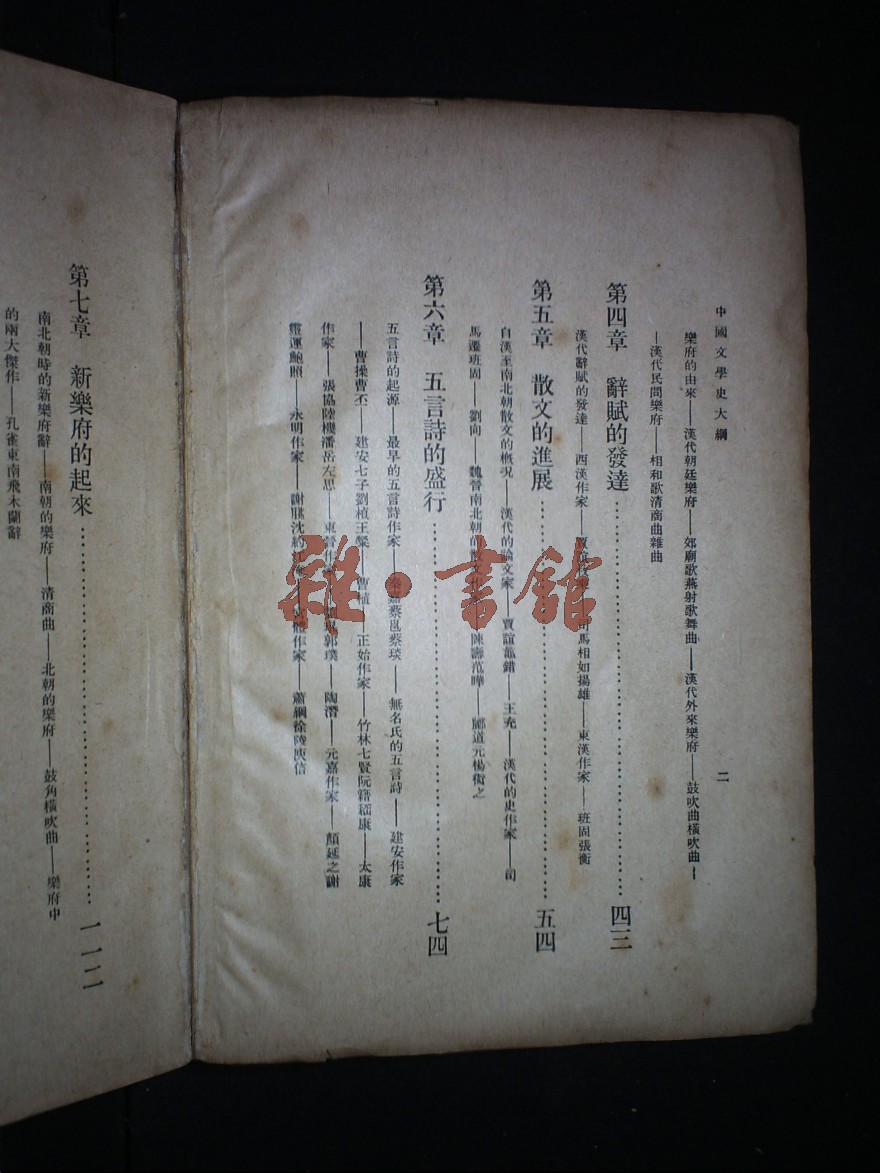 中國文學史大綱
二
樂府的由來——漢代朝廷樂府——郊廟歌燕射歌舞曲——漢代外來樂府——鼓吹曲橫吹曲—
—漢代民間樂府——相和歌清商曲雜曲
第四章 辭賦的發達……四三
漢代辭賦的發達——西漢作家——賈誼 司馬相如揚雄——東漢作家——班固張衡
第五章 散文的進展……五四
自漢至南北朝散文的概況——漢代的論文家——賈誼鼂錯——王充——漢代的史作家——司
馬遷班固——劉向——魏晉南北朝的散文 陳壽范曄——酈道元楊衒之
第六章 五言詩的盛行……七四
五言詩的起源——最早的五言詩作家——秦嘉蔡邕蔡琰——無名氏的五言詩——建安作家
——曹操曹丕——建安七子劉楨王粲——曹植——正始作家——竹林七賢阮籍嵇康——太康
作家——張協陸機潘岳左思——東晉作 郭璞——陶潛——元嘉作家——顏延之謝
靈運鮑照——永明作家——謝朓沈約 體作家——蕭綱徐陵庾信
第七章 新樂府的起來……一一二
南北朝時的新樂府辭——南朝的樂府——清商曲——北朝的樂府——鼓角橫吹曲——樂府中
的兩大傑作——孔雀東南飛木蘭辭
雜·書館